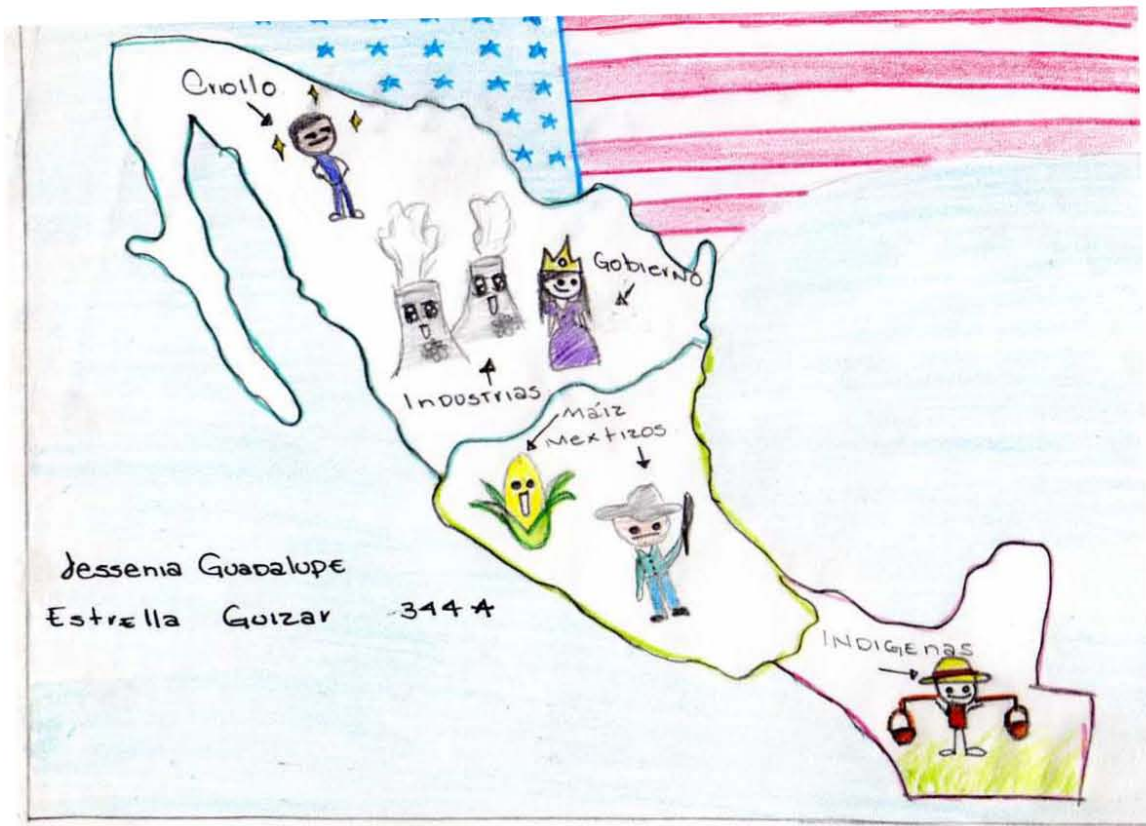 Criollo
Gobierno
Industrias
Máiz
Mextizos
Jessenia Guadalupe
Estrella Guizar 344A
INDIGEnas